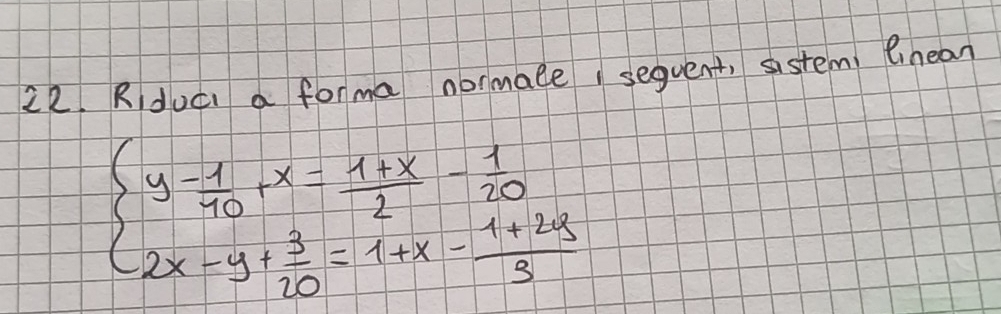 22. Riduci a forma normale i seguenti sistemi lineari
y - 1/10 + x = (1+x)/2 - 1/20
2x - y + 3/20 = 1 + x - (1+2y)/3